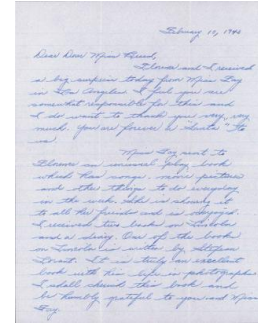 February 10, 1943
Dear Dear Miss Breed,
Florence and I received
a big surprise today from Miss Gay
in Los Angeles. I feel you are
somewhat responsible for this and
I do want to thank you very, very
much. You are forever a "Santa" to
us.
Miss Gay sent to
Florence an animal book
which has songs, more pictures
and other things to do everyday
in the week. She is showing it
to all her friends and is overjoyed.
I received two books on Lincoln
and a diary. One of the books
on Lincoln is written by Stefan
Lorant. It is truly an excellent
book with his life in photographs.
I shall cherish this book and
be humbly grateful to you and Miss
Gay.